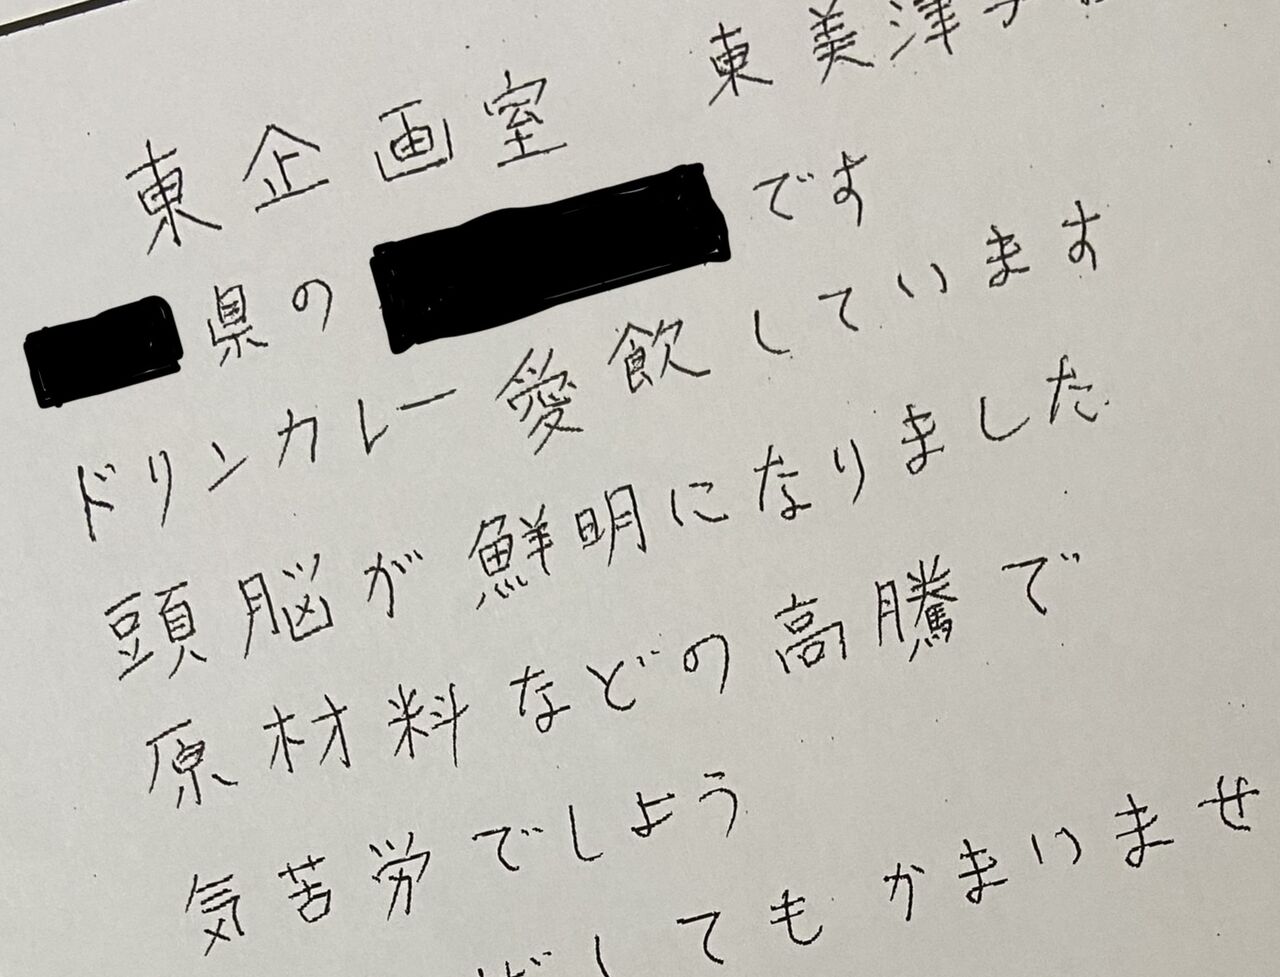 東企画室 東美津子
県の です
ドリンカレー愛飲しています
頭脳が鮮明になりました
原材料などの高騰で
気苦労でしよう
してもかまいませ